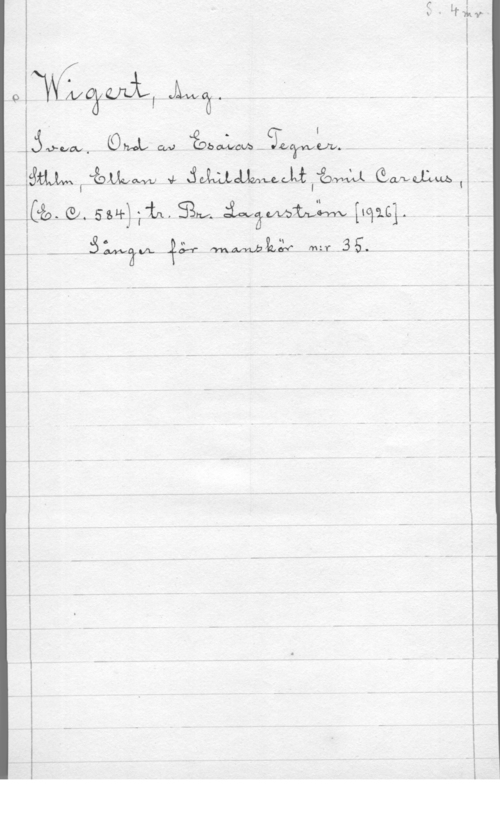 S. 4 mv
Wigert, Aug.
Svea. Ord av Esaias Tegnér.
Sthlm, Elkan & Schildknecht, Emil Carelius,
(E. C. 584); tr. Br. Lagerström [1926].
Sånger för manskör n:r 35.